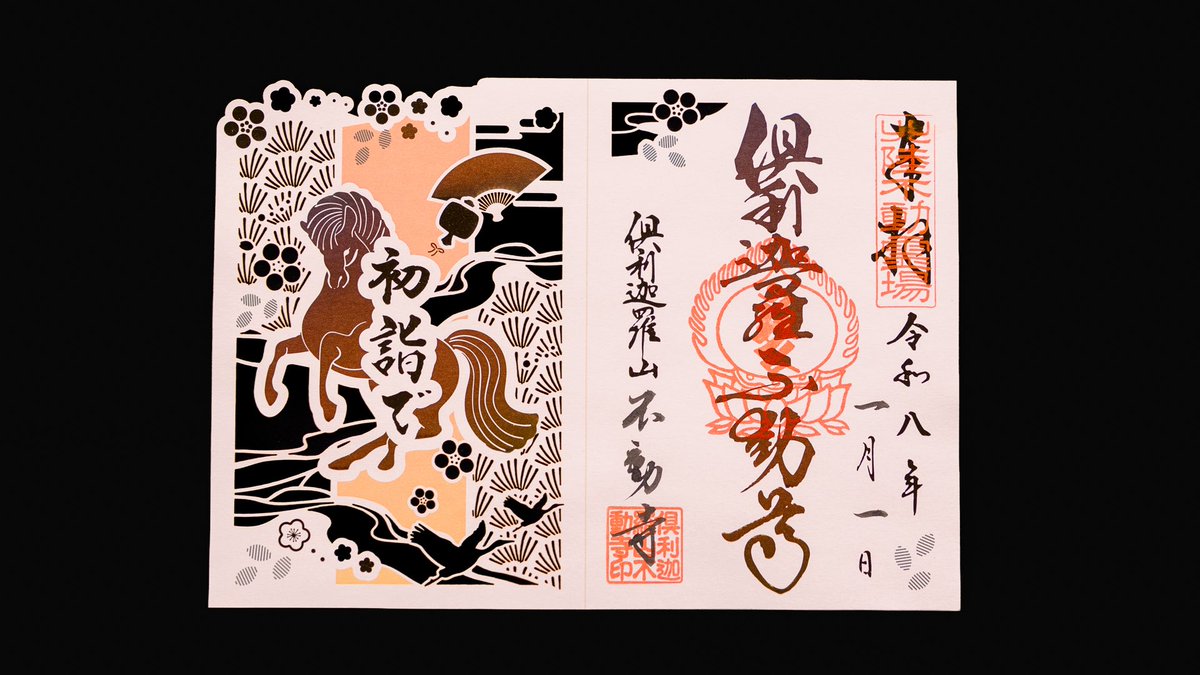 奉拝
北陸不動霊場
令和八年
一月一日
倶利迦羅不動尊
倶利迦羅山不動寺
初詣で